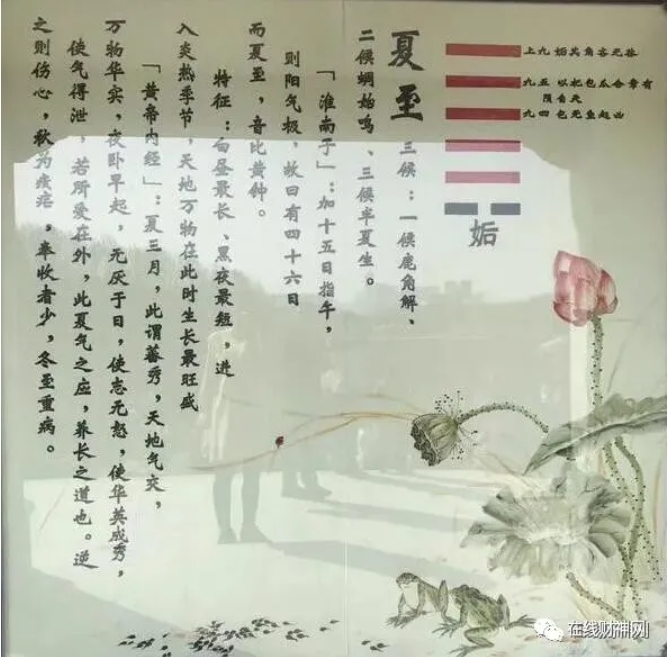 夏至 三候：一候鹿角解、
二候蜩始鸣、三候半夏生。
「淮南子」：加十五日指午，
则阳气极，故曰有四十六日
而夏至，音比黄钟。
特征：白昼最长、黑夜最短，进
入炎热季节，天地万物在此时生长最旺盛
「黄帝内经」：夏三月，此谓蕃秀，天地气交，
万物华实，夜卧早起，无厌于日，使志无怒，使华英成秀，
使气得泄，若所爱在外，此夏气之应，养长之道也。逆
之则伤心，秋为痎疟，奉收者少，冬至重病。
上九 姤其角吝无咎
九五 以杞包瓜含章有
陨自天
九四 包无鱼起凶
姤
在线财神网